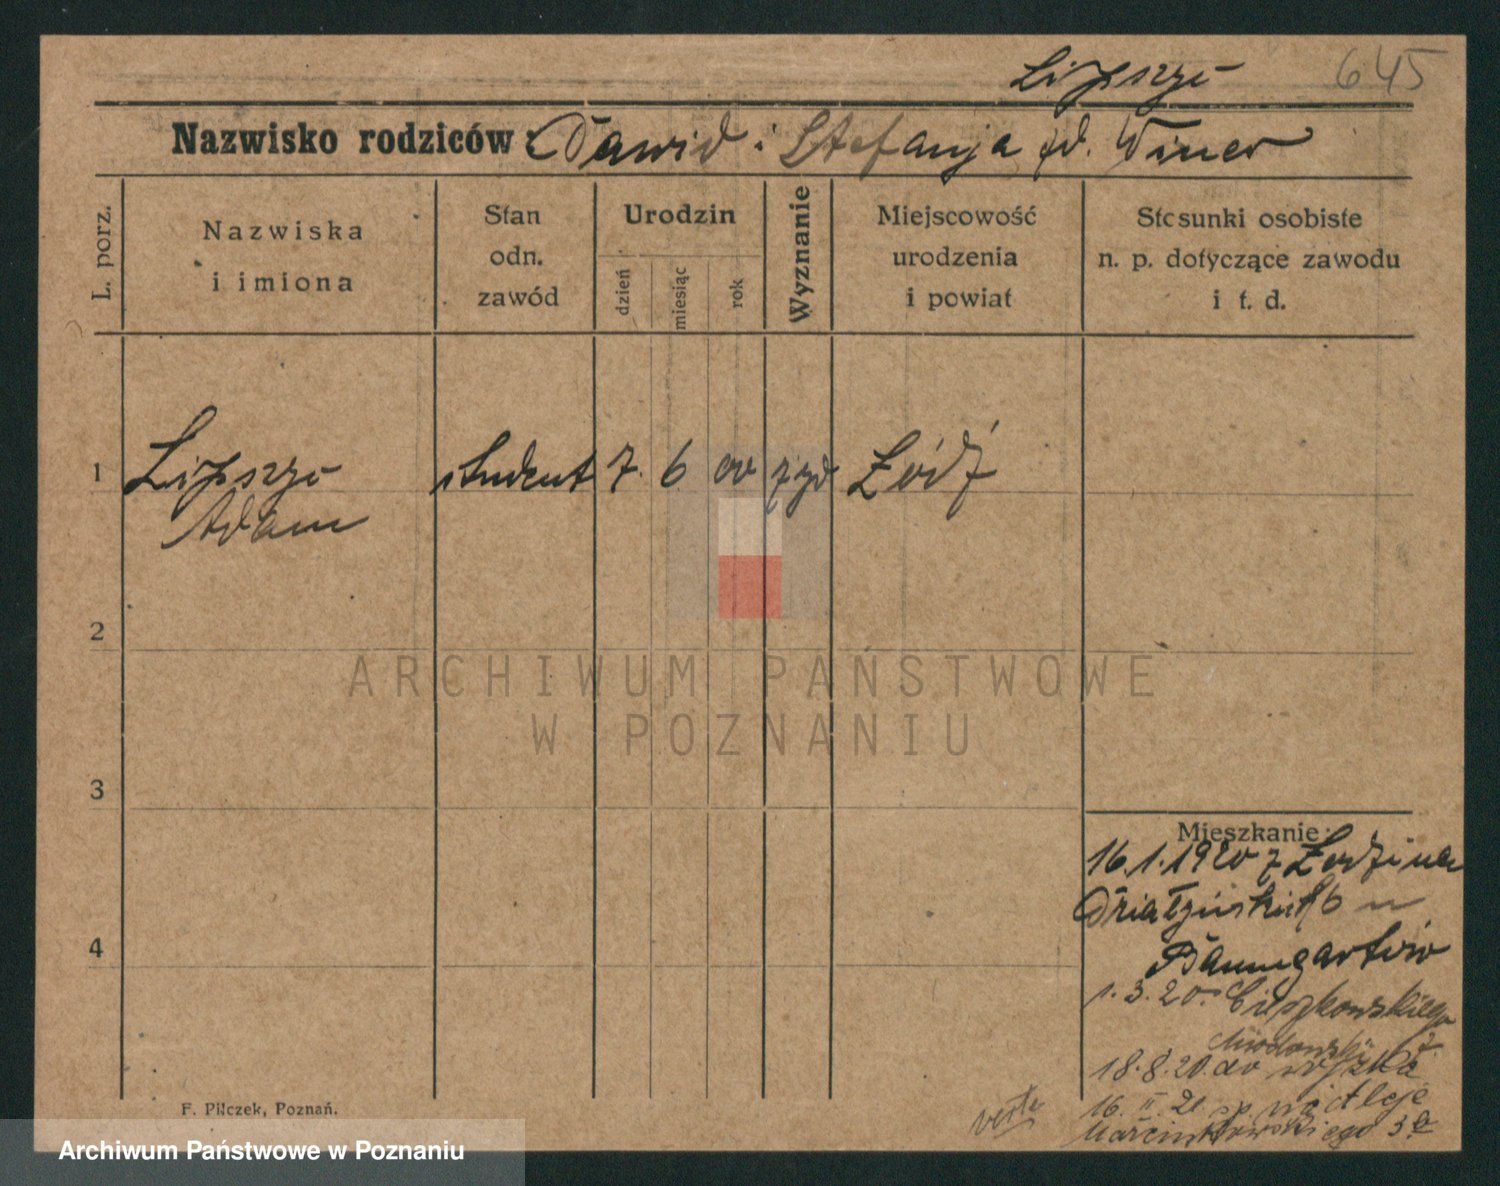 Lipszyc 645
Nazwisko rodziców: Dawid i Stefanja zd. Winer
L. porz.
Nazwiska
i imiona
Stan
odn.
zawód
Urodzin
dzień
miesiąc
rok
Wyznanie
Miejscowość
urodzenia
i powiat
Stosunki osobiste
n. p. dotyczące zawodu
i t. d.
1 Lipszyc student 7. 6. 00 żyd Łódź
Adam
2
3
4
Mieszkanie:
16.1.1920 z Łodzi na
Działyńskich 6 u
1.3.20. Cieszkowskiego
7.
18.8.20. do wojska
16. II. 21 na Aleje
Marcinkowskiego 3a
verte
F. Pilczek, Poznań.
ARCHIWUM PAŃSTWOWE
W POZNANIU
Archiwum Państwowe w Poznaniu